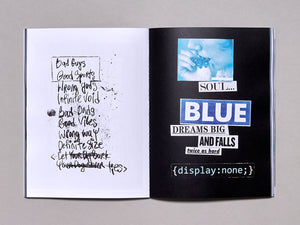 Bad Guys
Good Sports
Wrong Guys
Infinite Void
Bad Dads
Good Vibes
Wrong Way
Definite Size
< Let
SOUL...
BLUE
DREAMS BIG
AND FALLS
twice as hard
{display:none;}